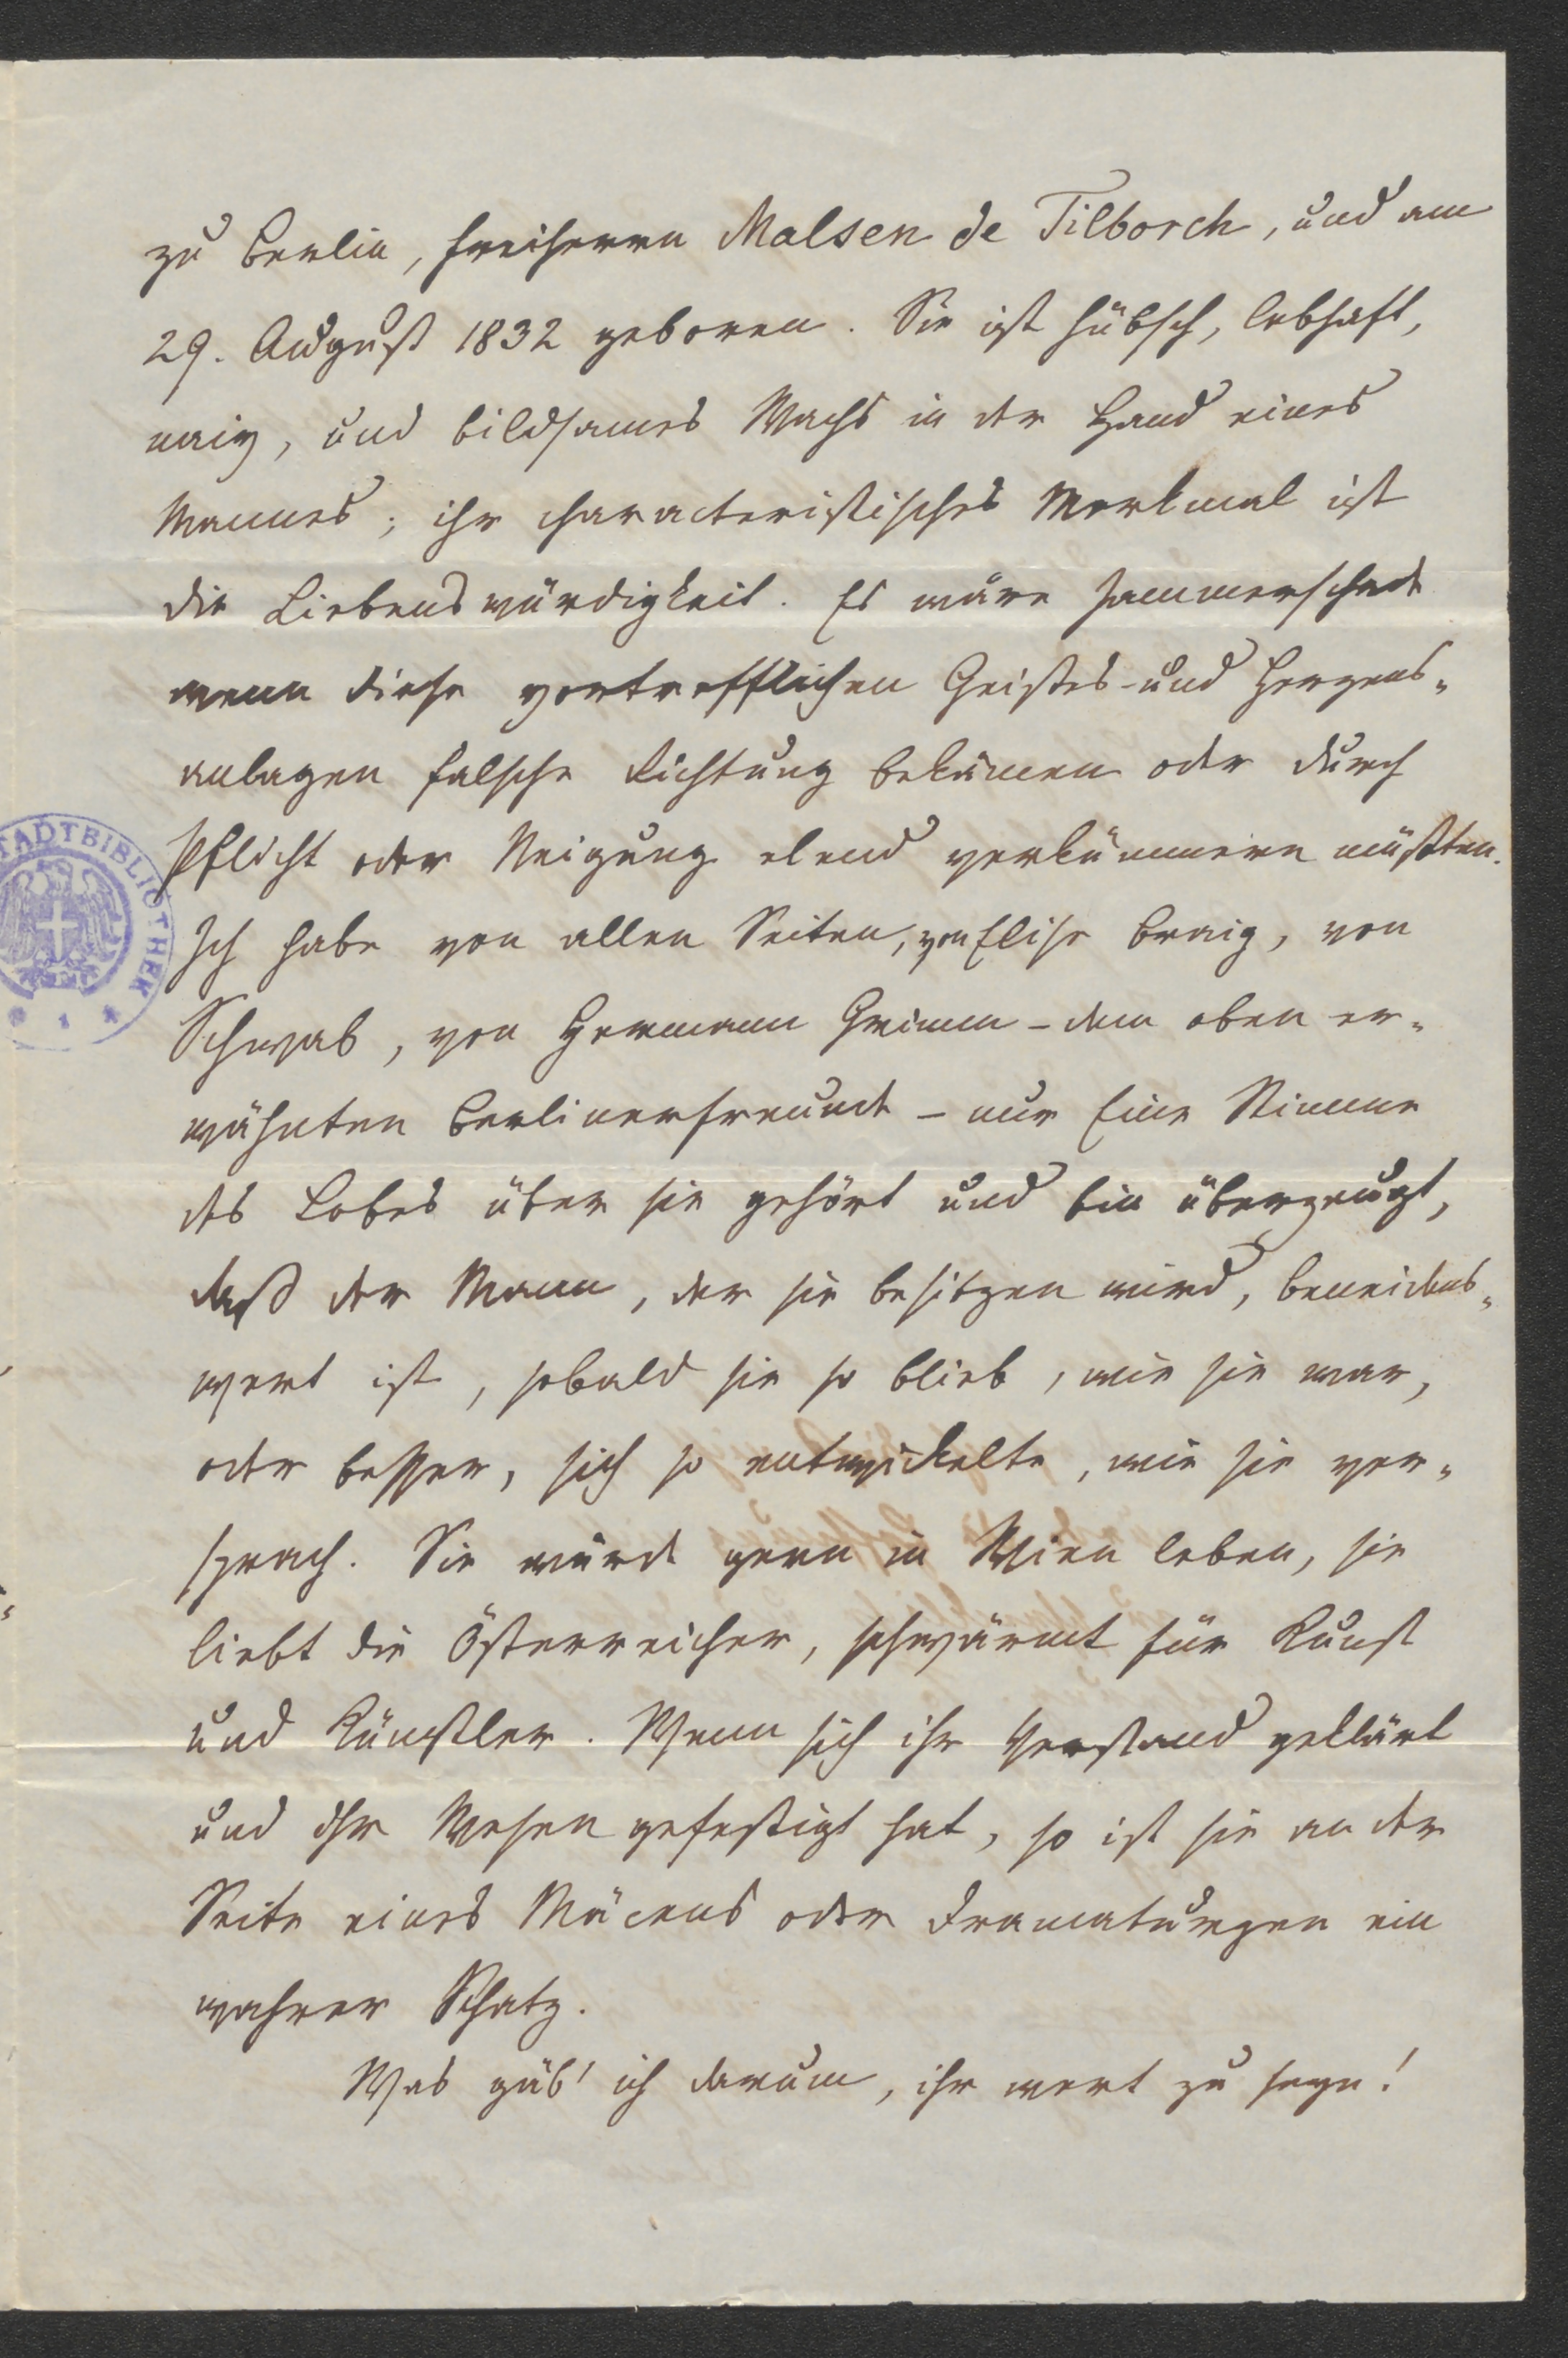 zu Berlin, Freiherrn Malsen de Tilborch, und am
29. August 1832 geboren. Sie ist hübsch, lebhaft,
naiv, und bildsames Wachs in der Hand eines
Mannes; ihr characteristisches Merkmal ist
die Liebenswürdigkeit. Es wäre jammerschade
wenn diese vortrefflichen Geistes- und Herzens-
anlagen falsche Richtung bekämen oder durch
Pflicht oder Neigung elend verkümmern müßten.
Ich habe von allen Seiten, von Elise Braig, von
Schwab, von Hermann Grimm - dem oben er-
wähnten Berlinerfreunde - nur Eine Stimme
des Lobes über sie gehört und bin überzeugt,
daß der Mann, der sie besitzen wird, beneidens-
wert ist, sobald sie so blieb, wie sie war,
oder besser, sich so entwickelte, wie sie ver-
sprach. Sie würde gern in Wien leben, sie
liebt die Österreicher, schwärmt für Kunst
und Künstler. Wenn sich ihr Verstand geklärt
und ihr Wesen gefestigt hat, so ist sie an der
Seite eines Mäcens oder Dramaturgen ein
wahrer Schatz.
Was gäb' ich darum, ihr wert zu seyn!
STADTBIBLIOTHEK